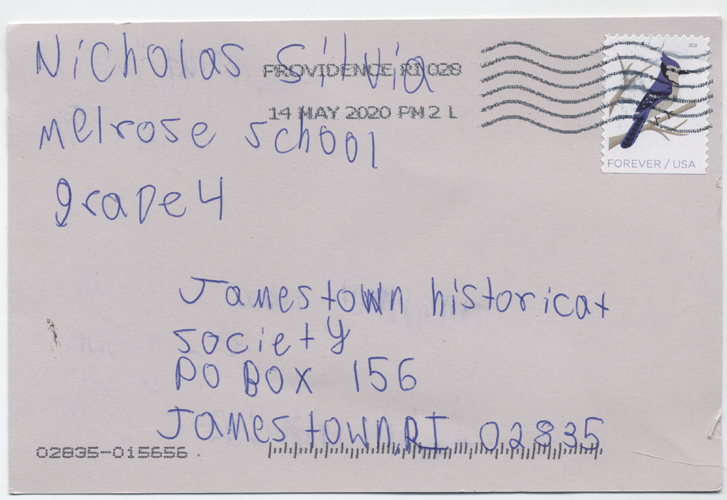 Nicholas Silvia
PROVIDENCE RI 028
14 MAY 2020 PM 2 L
FOREVER / USA
Melrose school
grade 4
Jamestown historical
society
PO BOX 156
Jamestown, RI 02835
02835-015656